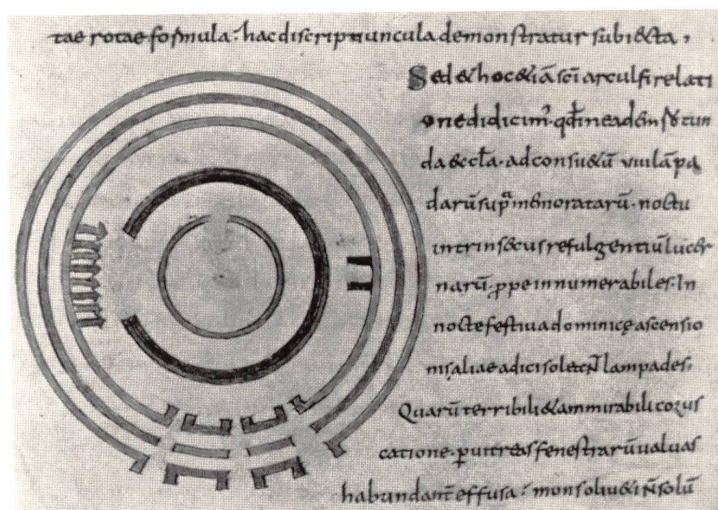 tae rotae formula · hac discriptiuncula demonstratur subiecta ,
Sed & hoc &iā sc̄i arculfi relati
one didicim̅ · qd̄ in eadem
da eccl̄a · ad consu&ū
darū memoratarū · noctu
intrinsecus refulgentiū lucer
narū · ꝓpe innumerabiles · In
nocte festiua dominicę ascensio
nis aliae adici solent lampades ·
Quarū terribili & ammirabili corus
catione · ꝑ uitreas fenestrarū ualuas
habundant̄ effusa · mons oliu&i n̄ solū